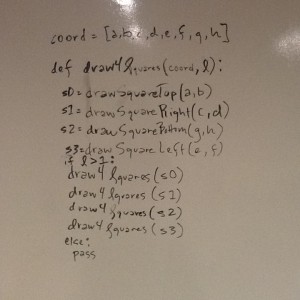 coord = [a,b,c,d,e,f,g,h]
def draw4Squares(coord, l):
s0 = drawSquareTop(a,b)
s1 = drawSquareRight(c,d)
s2 = drawSquareBottom(g,h)
s3 = drawSquareLeft(e,f)
if l > 1:
draw4Squares(s0)
draw4Squares(s1)
draw4Squares(s2)
draw4Squares(s3)
else:
pass